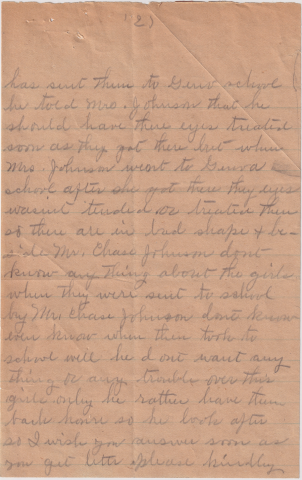 (2)
has sent them to Genv schivl
he told Mrs. Johnson that he
should have there eyes treated
soon as they got there but when
Mrs. Johnson went to Genva
school after she got there they eyes
wasint tended or treated then
so there are in bad shape & be-
side Mr. Chase Johnson dont
know any thing about the girls
when they were sent to school
by Mr. Chase Johnson dont know
even know when them took to
school well he dont want any
thing or any trouble over this
girls only he rather have them
back home so he look after
so I wish you answer soon as
you get letter. Please kindley